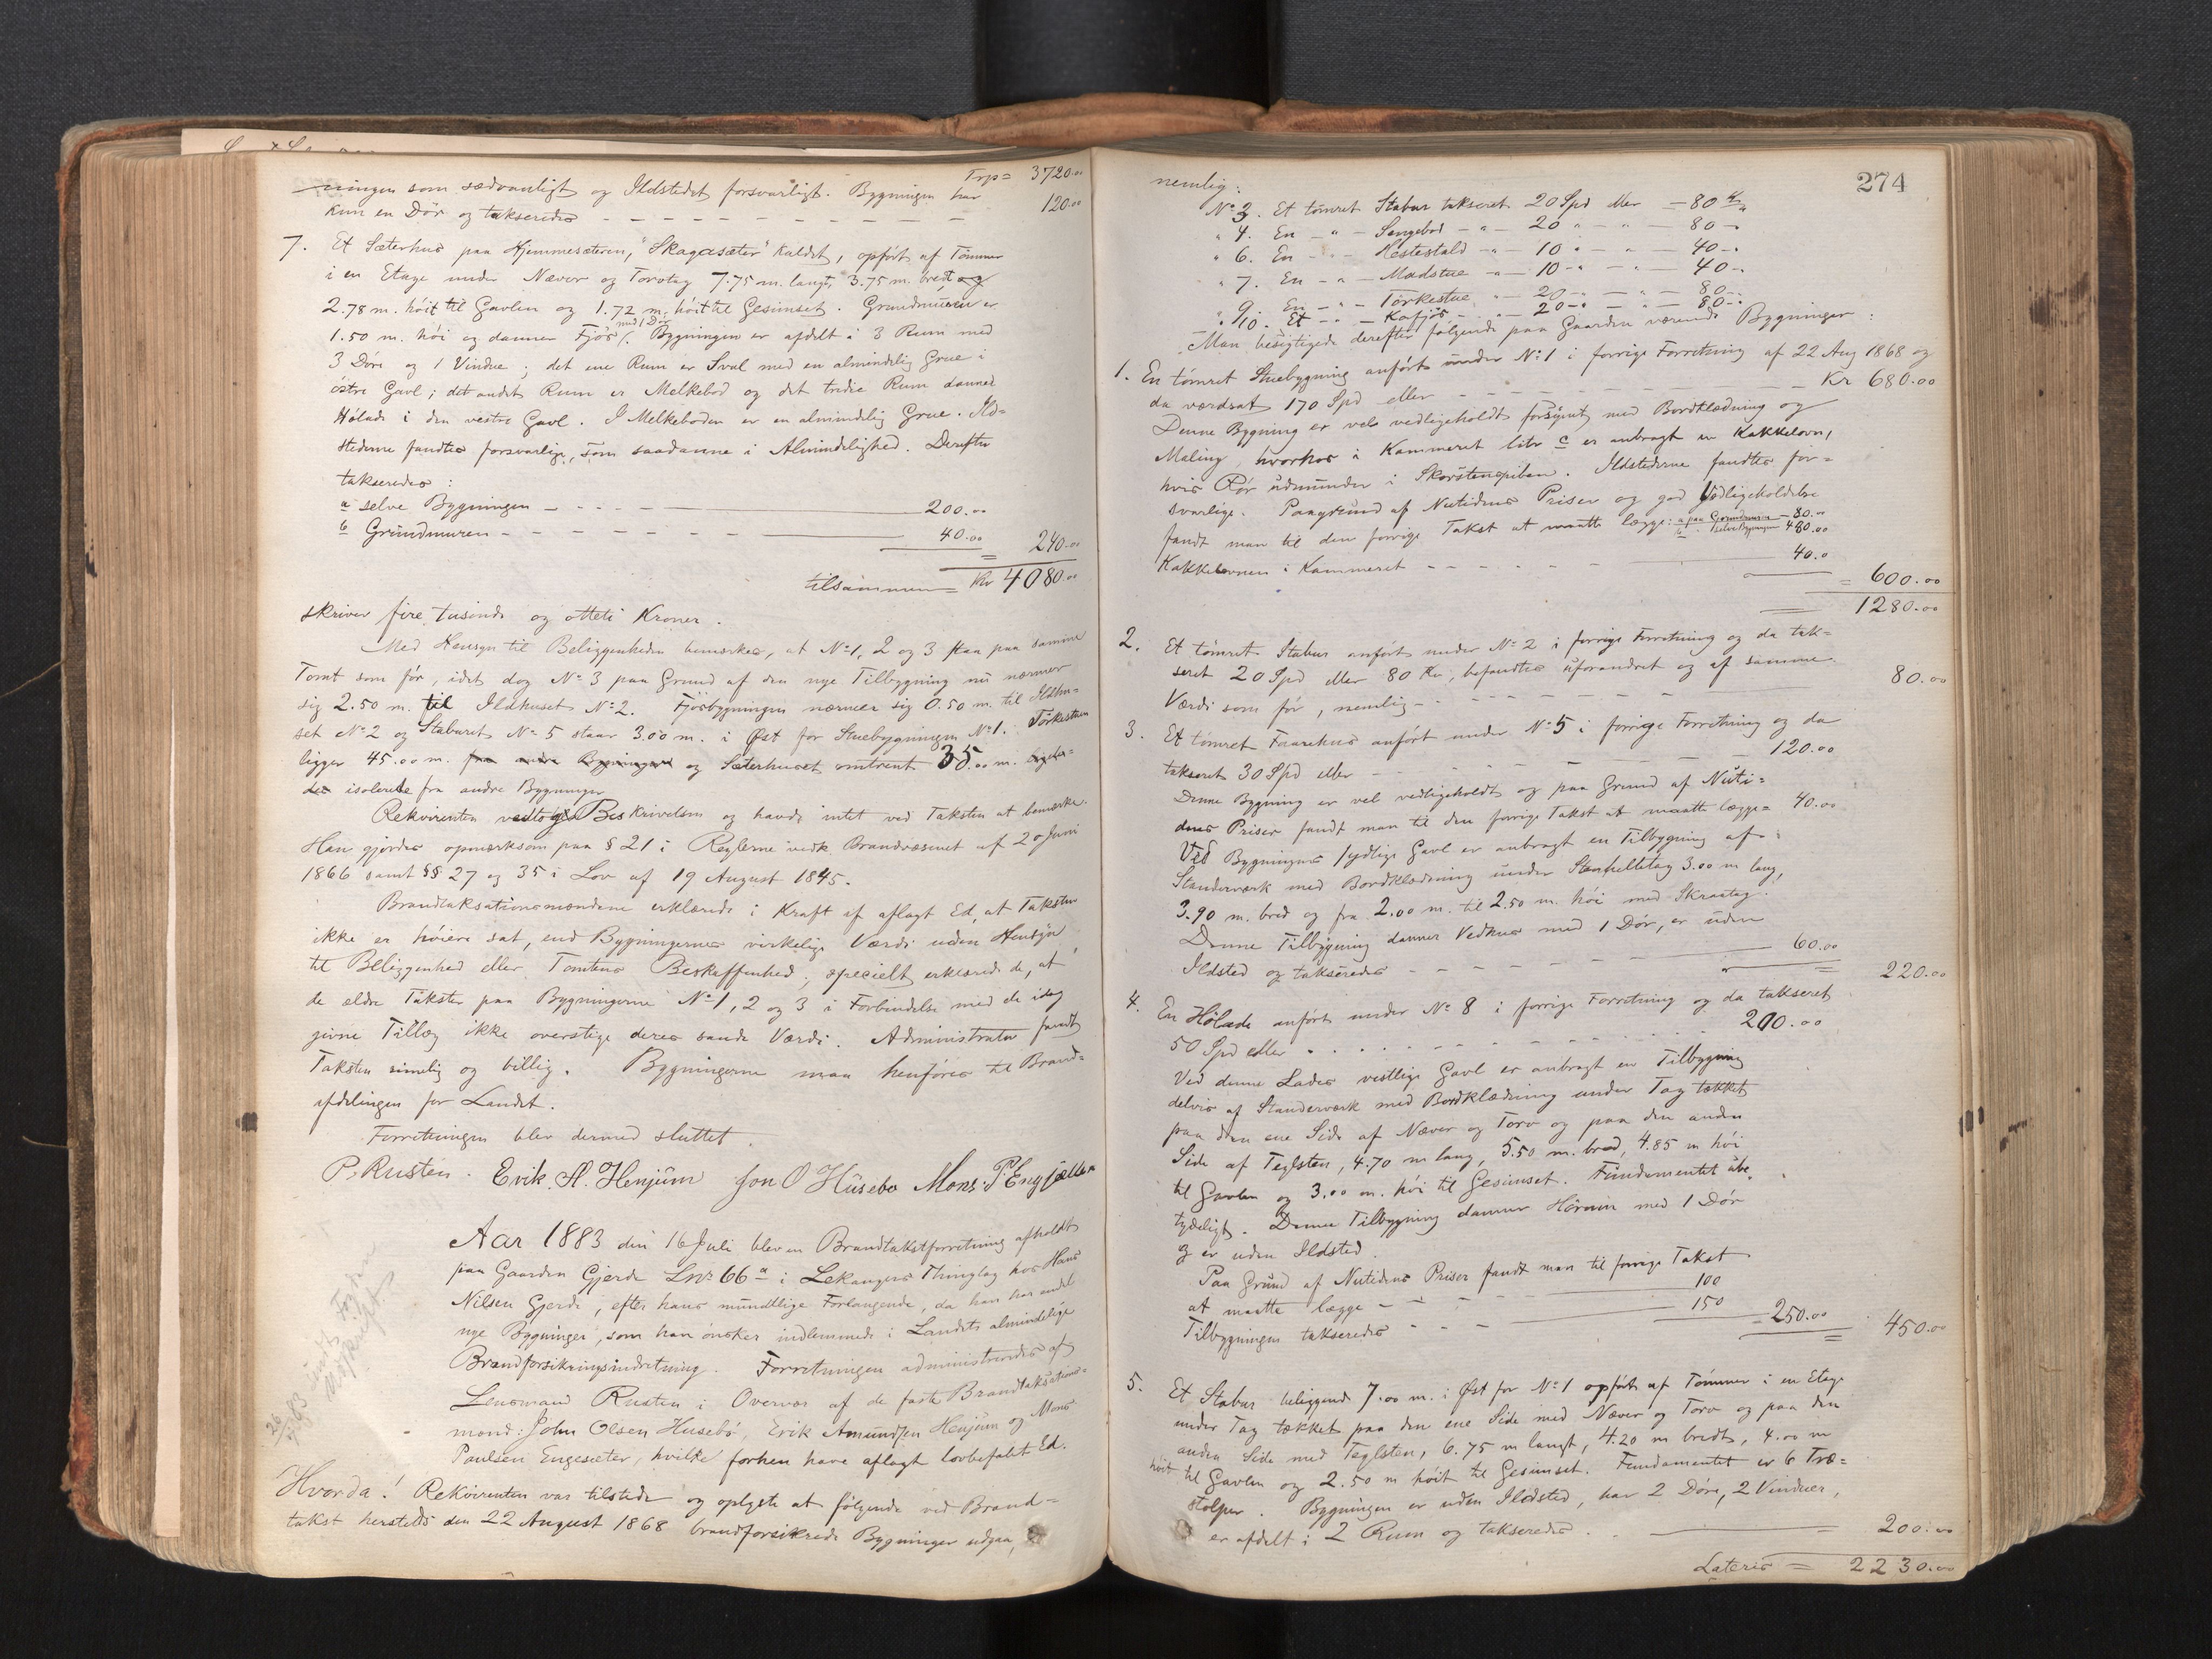 Trp= 3720.00
ningen som sædvanligt og Ildstedet forsvarligt. Bygningen har
kun en Dör og takseredes - - - - - - - - - 120.00
7. Et Sæterhus paa Hjemmesæteren, "Skagasæter" kaldet, opfört af Tömmer
i en Etage under Næver og Torvtag 7.75 m. langt, 3.75 m. bredt og
2.78 m. höit til Gavlen og 1.72 m. höit til Gesimset. Grundmuren er
1.50 m. höi og danner Fjös med 1 Dör. Bygningen er afdelt i 3 Rum med
3 Döre og 1 Vindue; det ene Rum er Sval med en almindelig Grue i
östre Gavl; det andet Rum er Melkebod og det tredie Rum danner
Hölade i den vestre Gavl. I Melkeboden er en almindelig Grue. Ild-
stederne fandtes forsvarlige, som saadanne i Almindelighed. Derefter
takseredes:
a selve Bygningen - - - - 200.00
b Grundmuren - - - - - - - 40.00
= 240.00
tilsammen = Kr 4080.00
skriver fire tusinde og otteti Kroner.
Med Hensyn til Beliggenheden bemærkes, at No 1, 2 og 3 staa paa samme
Tomt som för, idet dog No 3 paa Grund af den nye Tilbygning nu nærmer
sig 2.50 m. til Ildhuset No 2. Fjösbygningen nærmer sig 0.50 m. til Ildhu-
set No 2 og Staburet No 5 staar 3.00 m. i Öst for Stuebygningen No 1. Törkestuen
ligger 45.00 m. fra andre Bygninger og Sæterhuset omtrent 35.00 m. ligele-
des isolerede fra andre Bygninger
Rekvirenten vedtog Beskrivelsen og havde intet ved Taksten at bemærke.
Han gjordes opmærksom paa § 21 i Reglerne vedk. Brandvæsenet af 20 Juni
1866 samt §§ 27 og 35 i Lov af 19 August 1845.
Brandtaksationsmændene erklærede i Kraft af aflagt Ed, at Taksten
ikke er höiere sat, end Bygningernes virkelige Værdi uden Hensyn
til Beliggenhed eller Tomtens Beskaffenhed; specielt erklærede de, at
de ældre Takster paa Bygningerne No 1, 2 og 3 i Forbindelse med de idag
givne Tillæg ikke overstige deres sande Værdi. Administrator fandt
Taksten rimelig og billig. Bygningerne maa henföres til Brand-
afdelingen for Landet.
Forretningen blev dermed sluttet.
P. Rusten. Erik A. Henjüm Jon O Hüsebo Mons P. Engesæter
Aar 1883 den 16 Juli blev en Brandtakstforretning afholdt
paa Gaarden Gjerde Lnr 66 a i Lekangers Thinglag hos Hans
Nilsen Gjerde, efter hans mundtlige Forlangende, da han har endel
nye Bygninger, som han önsker indlemmede i Landets almindelige
Brandforsikringsindretning. Forretningen administreredes af
Lensmand Rusten i Overvær af de faste Brandtaksations-
mænd: John Olsen Husebö, Erik Amundsen Henjum og Mons
Paulsen Engesæter, hvilke forhen have aflagt lovbefalet Ed.
Hvorda! Rekvirenten var tilstede og oplyste at fölgende ved Brand-
takst herstedes den 22 August 1868 brandforsikrede Bygninger udgaa,
274
nemlig:
No 3. Et tömret Stabur takseret 20 Spd eller - 80 Kr
" 4. En - " - Sengebod - " - 20 " - " - 80 -
" 6. En - " - Hestestald - " - 10 " - " - 40 -
" 7. En - " - Madstue - " - 10 - " - " - 40 -
" 9. En - " - Törkestue - " - 20 - " - 80 -
" 10. Et - " - Kafjös - " - 20 - " - 80 -
Man besigtigede derefter fölgende paa Gaarden værende Bygninger:
1. En tömret Stuebygning anfört under No 1 i forrige Forretning af 22 Aug 1868 og
da værdsat 170 Spd eller - - - - - Kr 680.00
Denne Bygning er vel vedligeholdt forsynet med Bordklædning og
Maling, hvorhos i Kammeret litr c er anbragt en Kakkelovn,
hvis Rör udmunder i Skorstenspiben. Ildstederne fandtes for-
svarlige. Paagrund af Nutidens Priser og god Vedligeholdelse
fandt man til den forrige Takst at maatte lægge: a paa Grundmuren - 80.00
b " selve Bygningen 480.00
Kakkelovnen i Kammeret - - - - - 40.0
= 600.00
1280.00
2. Et tömret Stabur anfört under No 2 i forrige Forretning og da tak-
seret 20 Spd eller 80 Kr, befandtes uforandret og af samme
Værdi som för, nemlig - - - - - 80.00
3. Et tömret Faarehus anfört under No 5 i forrige Forretning og da
takseret 30 Spd eller - - - - - 120.00
Denne Bygning er vel vedligeholdt og paa Grund af Nuti-
dens Priser fandt man til den forrige Takst at maatte lægge = 40.00
Ved Bygningens sydlige Gavl er anbragt en Tilbygning af
Standerværk med Bordklædning under Stenhelletag 3.00 m lang,
3.90 m. bred og fra 2.00 m. til 2.50 m. höi med Skraatag.
Denne Tilbygning danner Vedhus med 1 Dör, er uden
Ildsted og takseredes - - - - - 60.00
= 220.00
4. En Hölade anfört under No 8 i forrige Forretning og da takseret
50 Spd eller - - - - - 200.00
Ved denne Lades vestlige Gavl er anbragt en Tilbygning
delvis af Standerværk med Bordklædning under Tag tækket
paa den ene Side af Næver og Torv og paa den anden
Side af Teglsten, 4.70 m lang, 5.50 m. bred, 4.85 m höi
til Gavlen og 3.00 m. höi til Gesimset. Fundamentet ube-
tydeligt. Denne Tilbygning danner Hörum med 1 Dör
og er uden Ildsted.
Paa Grund af Nutidens Priser fandt man til forrige Takst
at maatte lægge - - - - 100
Tilbygningen takseredes - - - 150 = 250.00
= 450.00
5. Et Stabur beliggende 7.00 m. i Öst for No 1 opfört af Tömmer i en Etage
under Tag tækket paa den ene Side med Næver og Torv og paa den
anden Side med Teglsten, 6.75 m langt, 4.20 m bredt, 4.00 m
höit til Gavlen og 2.50 m höit til Gesimset. Fundamentet er 6 Træ-
stolper. Bygningen er uden Ildsted, har 2 Döre, 2 Vinduer,
er afdelt i 2 Rum og takseredes - 200.00
Lateris = 2230.00